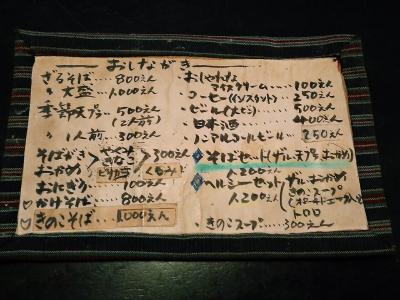 おしながき
ざるそば……800えん
〃 大盛……1,000えん
季節天ぷら……500えん
(2人前)
〃 1人前……300えん
そばがき
おかめ
300えん
くるみ
おにぎり……100えん
かけそば……800えん
きのこそば……1,000えん
おしゃれな
アイスクリーム……100えん
コーヒー(インスタント)250えん
ビール(大ビン)……500えん
日本酒……400えん
ノンアルコールビール……250えん
そばセット(ザル、天ぷら、おかめ)
1,200えん
ヘルシーセット
1,200えん
ザル、おかめ
きのこスープ
トロロ
きのこスープ……300えん